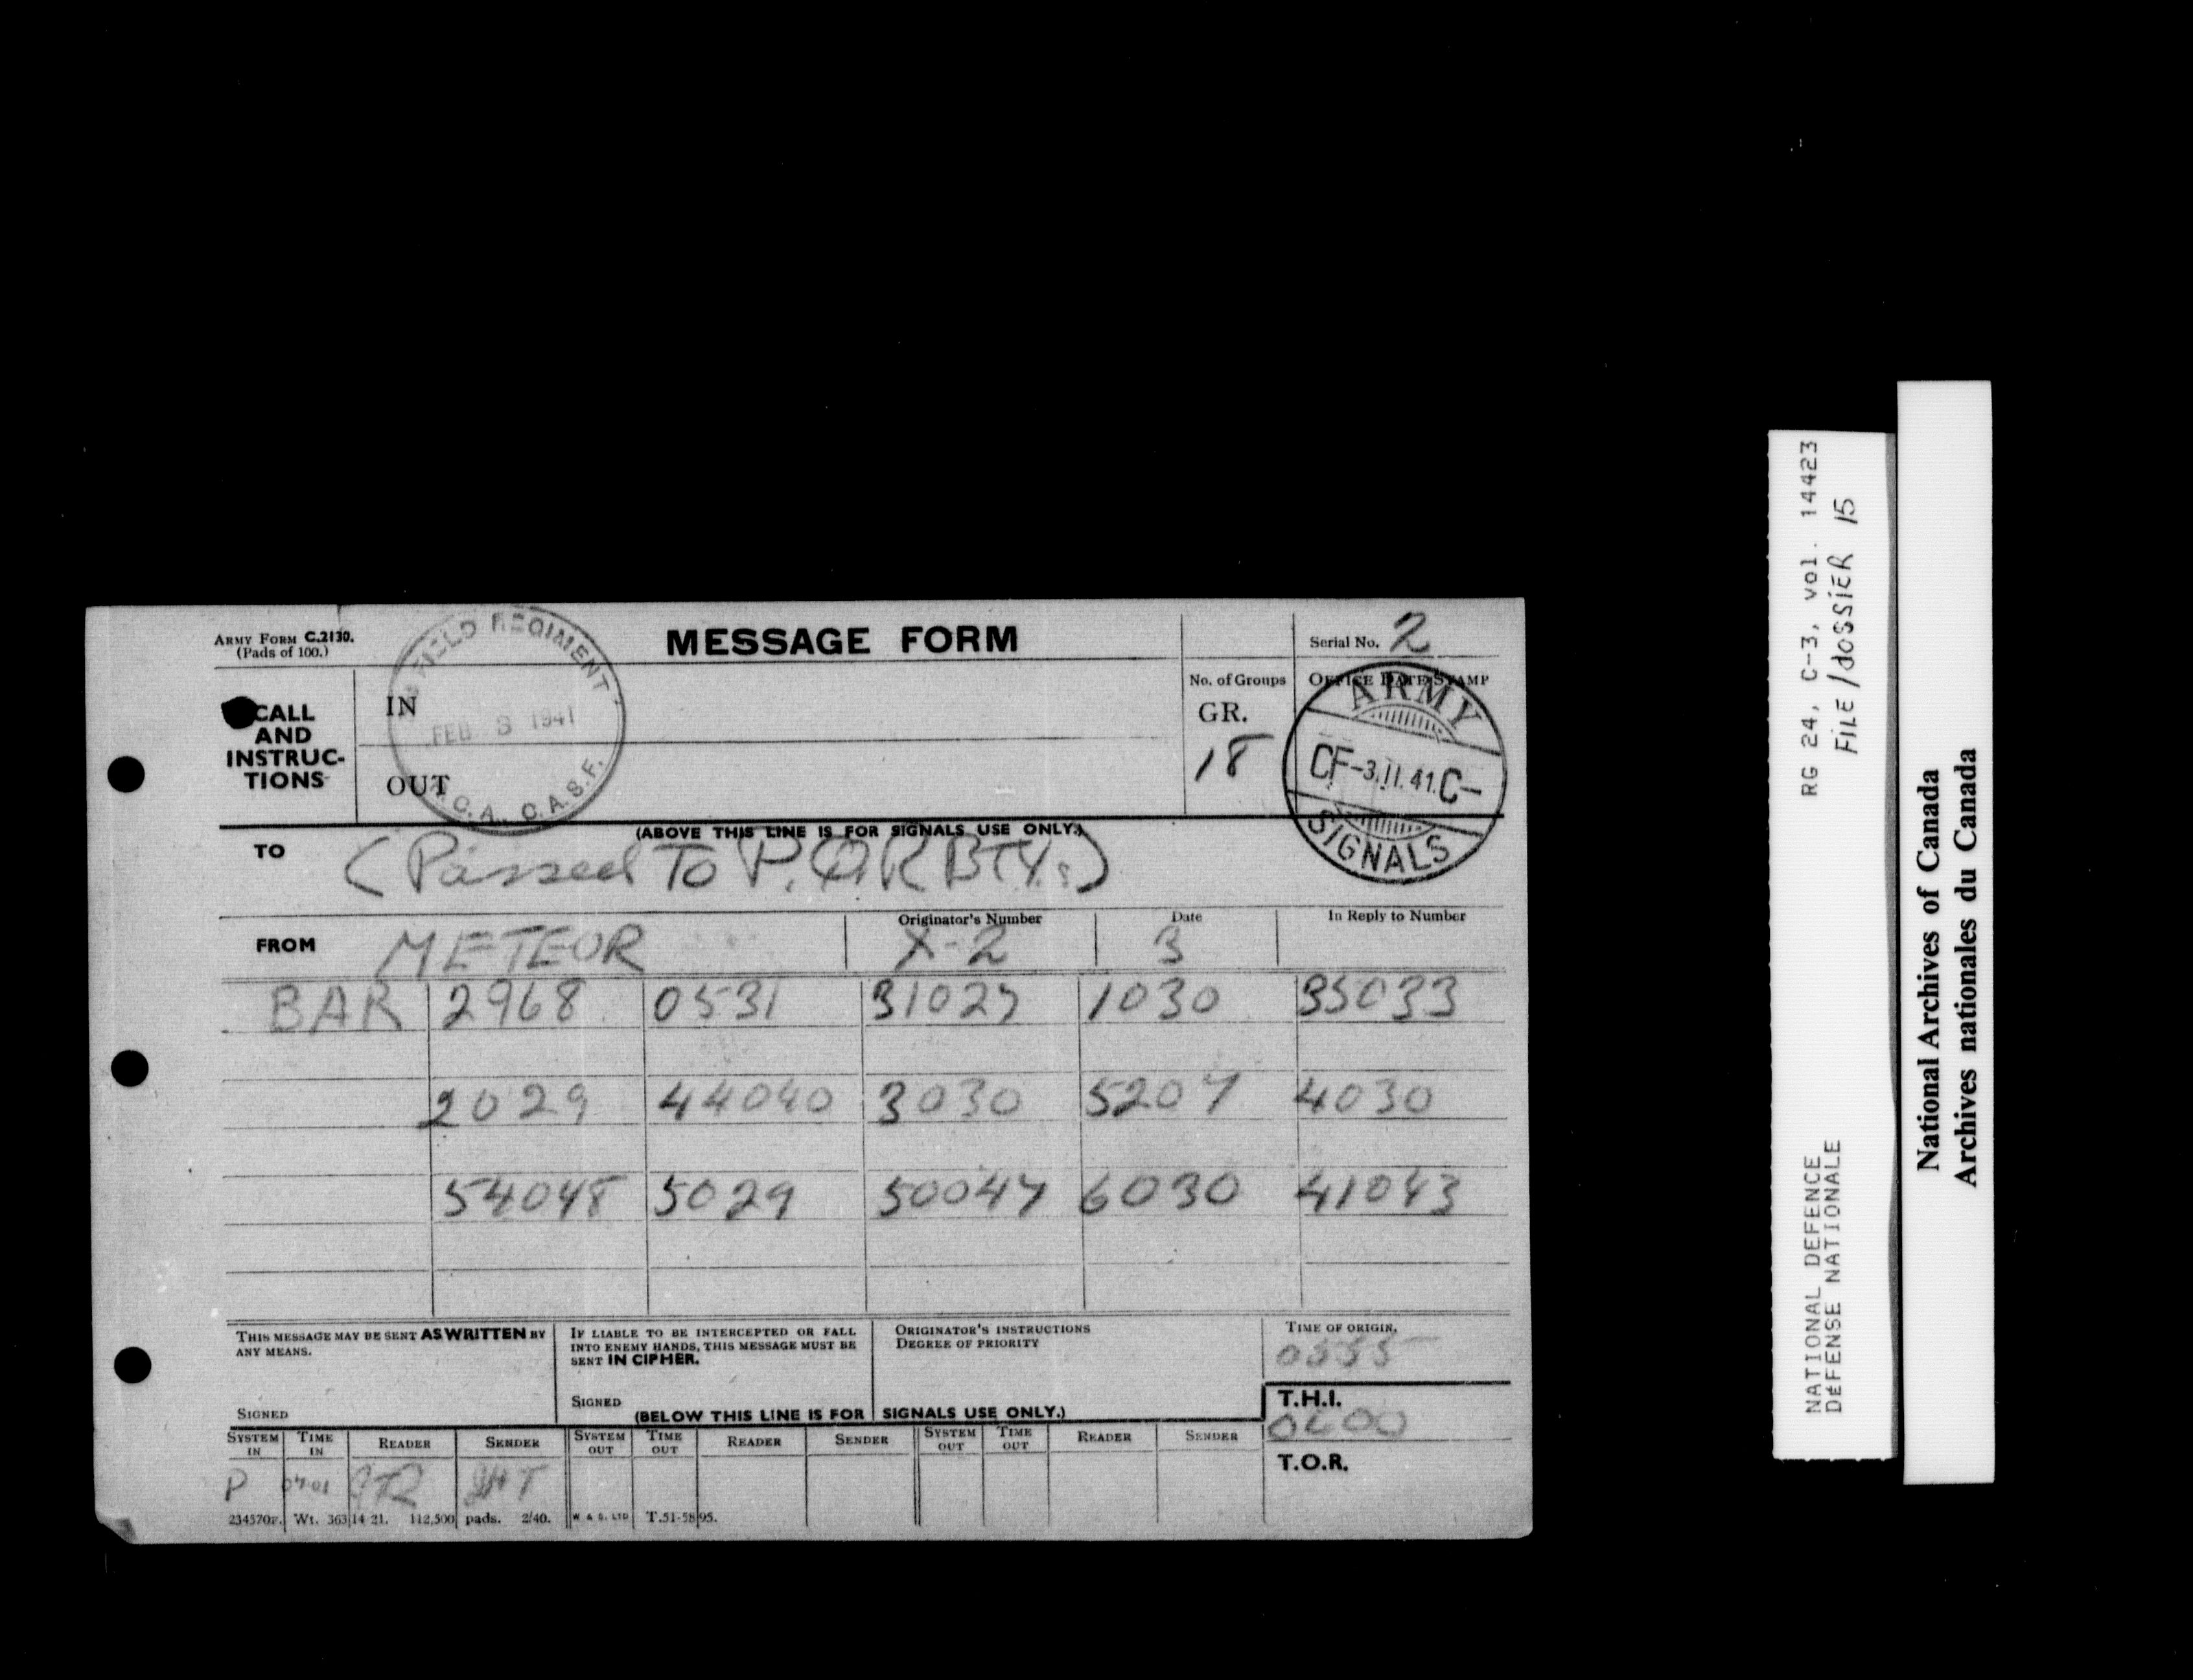 ARMY FORM C.2130.
(Pads of 100.)
MESSAGE FORM
Serial No. 2
FIELD REGIMENT
FEB 3 1941
C.A., C.A.S.F.
CALL
AND
INSTRUC-
TIONS
IN
OUT
No. of Groups
GR.
18
OFFICE DATE STAMP
ARMY
CF-3.II.41.C-
SIGNALS
(ABOVE THIS LINE IS FOR SIGNALS USE ONLY.)
TO (Passed To P.Q R BTYs)
FROM METEOR
Originator's Number
X-2
Date
3
In Reply to Number
BAR 2968 0531 31027 1030 35033
2029 44040 3030 5207 4030
54048 5029 50047 6030 41043
THIS MESSAGE MAY BE SENT AS WRITTEN BY
ANY MEANS.
SIGNED
IF LIABLE TO BE INTERCEPTED OR FALL
INTO ENEMY HANDS, THIS MESSAGE MUST BE
SENT IN CIPHER.
SIGNED
ORIGINATOR'S INSTRUCTIONS
DEGREE OF PRIORITY
TIME OF ORIGIN.
0555
(BELOW THIS LINE IS FOR SIGNALS USE ONLY.)
T.H.I.
0600
T.O.R.
SYSTEM IN TIME IN READER SENDER SYSTEM OUT TIME OUT READER SENDER SYSTEM OUT TIME OUT READER SENDER
P 0701
234570F. Wt. 36314 21. 112,500 pads. 2/40. W & S. LTD T.51-5895.
RG 24, C-3, vol. 14423
FILE/dOSSiER 15
NATIONAL DEFENCE
DÉFENSE NATIONALE
National Archives of Canada
Archives nationales du Canada